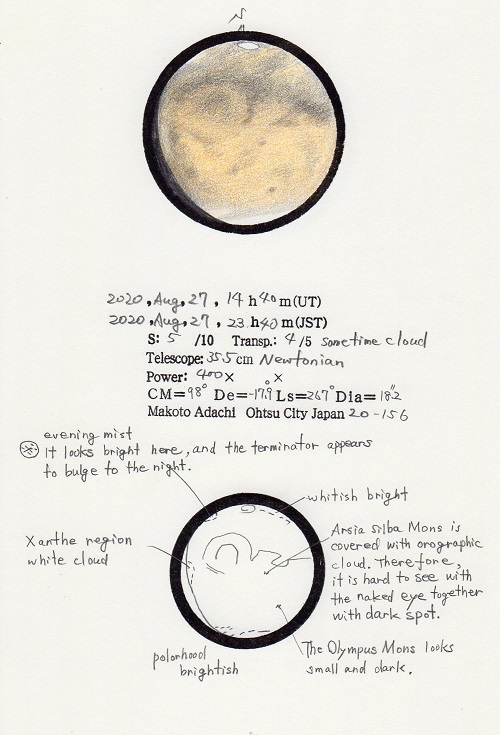 N
2020, Aug, 27, 14 h 40 m (UT)
2020, Aug, 27, 23 h 40 m (JST)
S: 5 /10 Transp.: 4 /5 sometime cloud
Telescope: 35.5 cm Newtonian
Power: 400 × ×
CM= 98° De= -17.9° Ls= 267° Dia= 18".2
Makoto Adachi Ohtsu City Japan 20-156
evening mist
It looks bright here, and the terminator appears
to bulge to the night.
whitish bright
Xanthe region
white cloud
Arsia Silba Mons is
covered with orographic
cloud. Therefore,
it is hard to see with
the naked eye together
with dark spot.
polorhood
brightish
The Olympus Mons looks
small and dark.